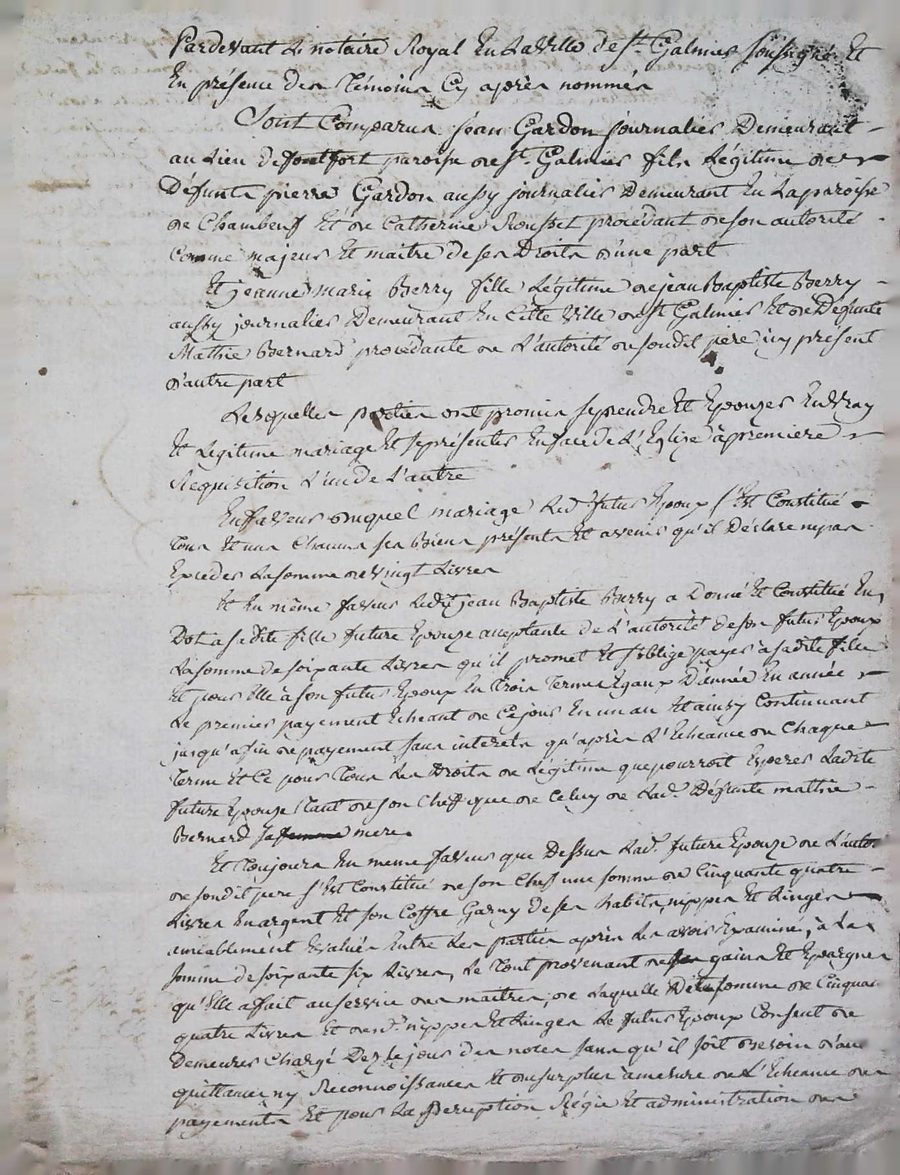 Pardevant Le notaire Royal En La Ville de St. Galmier soussigné Et
En présence des Témoins Cy après nommés
Sont Comparus jean Gardon journalier Demeurant
au Lieu de fontfort paroisse de St. Galmier fils Légitime de
Défunts pierre Gardon aussy journalier Demeurant En La paroisse
de Chambeuf Et de Catherine Rousset procédant de son autorité
Comme majeur Et maitre de ses Droits d'une part
Et jeanne marie Berry fille Légitime de jean Baptiste Berry
aussy journalier Demeurant En Cette Ville de St Galmier Et de Defunte
Mathie Bernard procédante de L'autorité de son dit père icy présent
d'autre part
Lesquelles parties ont promis se prendre Et Epouzer En Vray
Et Légitime mariage Et se présenter En face de L'Eglise à première
Requisition L'un de L'autre
En faveur duquel mariage Led. futur Epoux s'Est Constitué
Tous Et uns Chacuns ses Biens présents Et avenir qu'il Déclare ne pas
Excéder La somme de Vingt Livres
Et En même faveur Ledit jean Baptiste Berry a Donné Et Constitué En
Dot a sa dite fille future Epouze acceptante de L'autorité de son futur Epoux
La somme de soixante Livres qu'il promet Et s'oblige payer à sa dite fille
Et pour Elle à son futur Epoux En Trois Termes Egaux D'année En année
Le premier payement Echeant de Ce jour En un an Et ainsy Continuant
jusqu'a fin de payement sans interets qu'après L'Echeance de Chaque
Terme Et Ce pour Tous Les Droits de Légitime que pourroit Esperer Ladite
future Epouze Tant de son Cheff que de Celuy de Lad. Défunte mathie
Bernard sa femme mere
Et Toujours En meme faveur que Dessus Lad. future Epouze de L'autor.
de son dit pere s'Est Constitué de son Cheff une somme de Cinquante quatre
Livres En argent Et son Coffre Garny de ses habits, nippes Et Linges
amiablement Evalués Entre Les parties après Les avoir Examiné, à La
somme de soixante six Livres, Le Tout provenant de ses gains Et Epargnes
qu'Elle a fait au service des maitres, de Laquelle Dite somme de Cinquan
quatre Livres Et desd. nippes Et Linges Le futur Epoux Consent de
Demeurer Chargé Dez Le jour des noces sans qu'il soit Besoin d'autre
quittance ny Reconnoissances Et du surplus à mesure de L'Echeance des
payements Et pour La perception Régie Et administration des